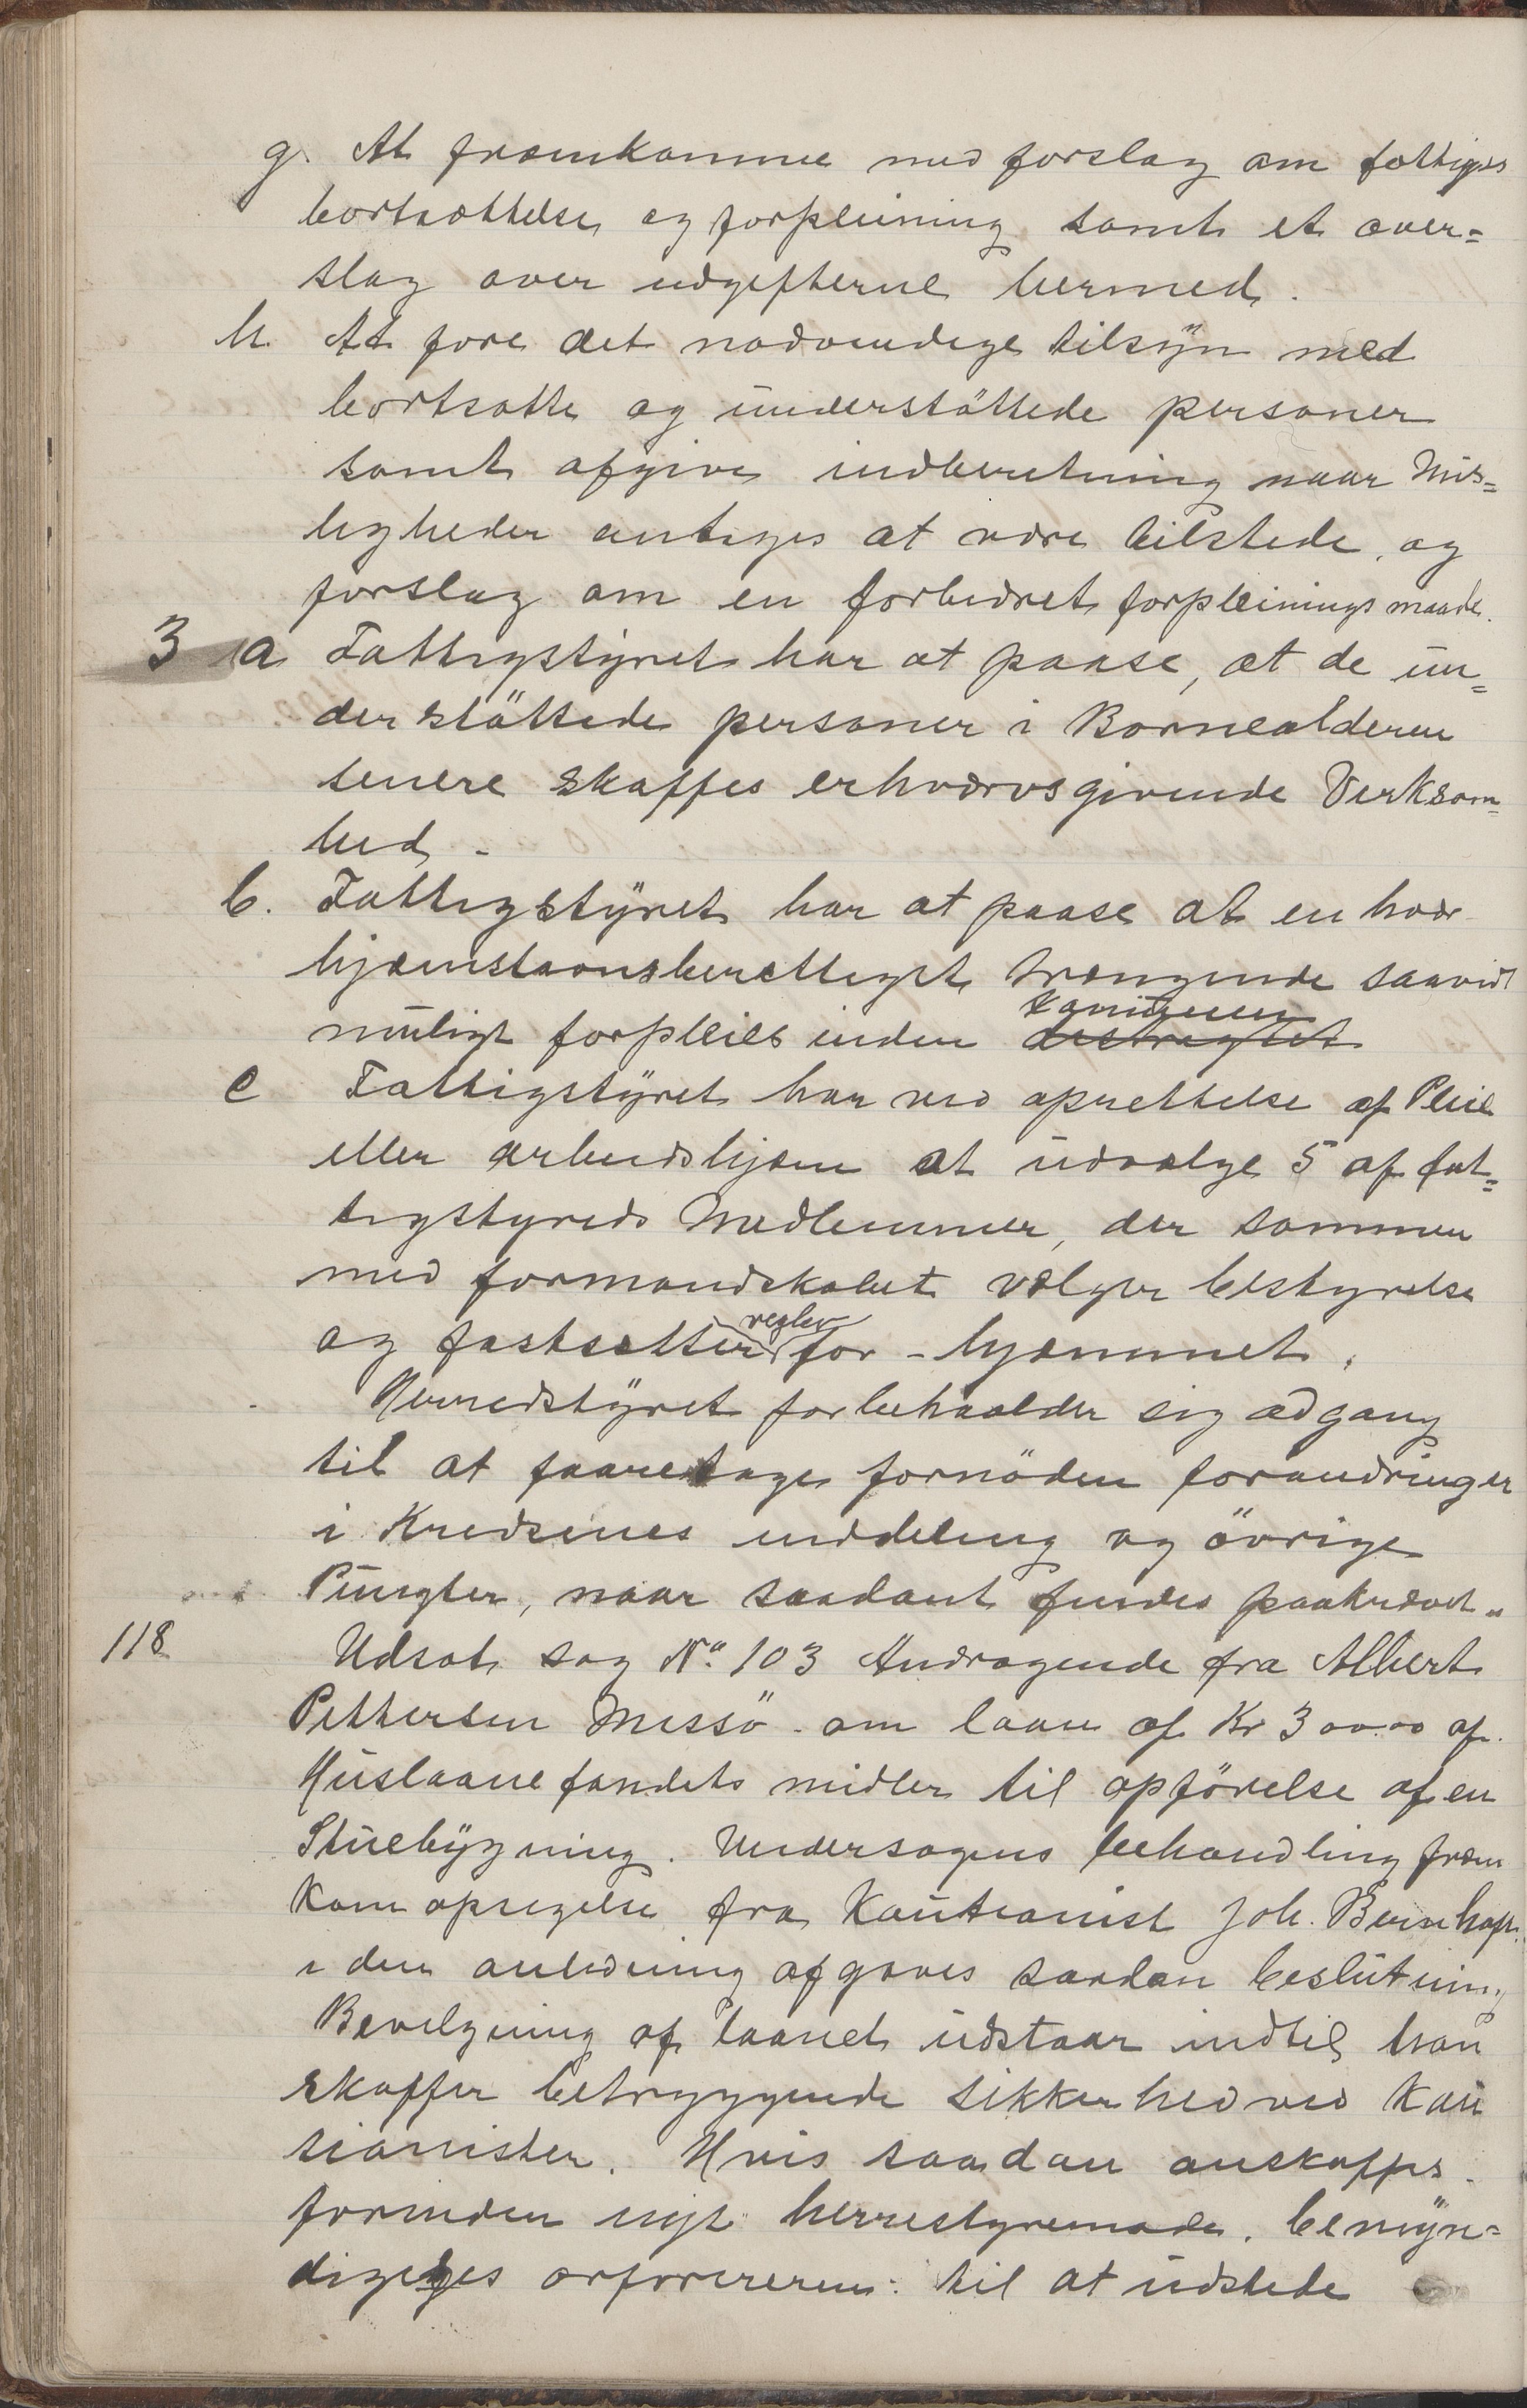 g. At fræmkomme med forslag om fattiges
bortsættelse og forpleining samt et over=
slag over udgefterne hermed.
h. At føre det nødvendige tilsÿn med
bortsatte og understöttede personer
samt afgive indberetning naar Mis=
ligheder antages at være tilstede, og
forslag om en forbedret forpleinings maade.
3 a Fattigstÿret har at paase, at de un=
derstöttede personer i Bornealderen
senere skaffes erhværvsgivende Verksom=
hed.
b. Fattigstÿret har at paase at en hver
hjæmstavnsberettiget trængende saavidt
muligt forpleies inden distrigtet komunen
c Fattigstÿret har ved oprettelse af Pleie
eller arbeidshjæm at udvælge 5 af fat=
tigstyreds Medlemmer, der sammen
med formandskabet vælger bestyrelse
og fastsætter regler for - hjæmmet.
Herredstÿret forbehaalder sig adgang
til at faaretage fornöden forandringer
i Kredsenes inddeling og övrige
Pungter, naar saadant findes paakrævet"
118 Udsat sag No. 103 Andragende fra Albert
Pettersen Messö - om laan af Kr 300.00 af
Huslaanefondets midler til opförelse af en
Stuebÿgning. Undersagens behandling fræm
kom opsigelse fra Kautionist Joh. Bernhoft.
i den anledning afgaves saadan beslutning
Bevilgning af laanet udstaar indtil han
skaffer betryggende sikkerhed ved Kau
sionister. Hvis saadan anskaffes
forinden nyt herrestyremøde. bemÿn=
digeges orføreren til at udstede